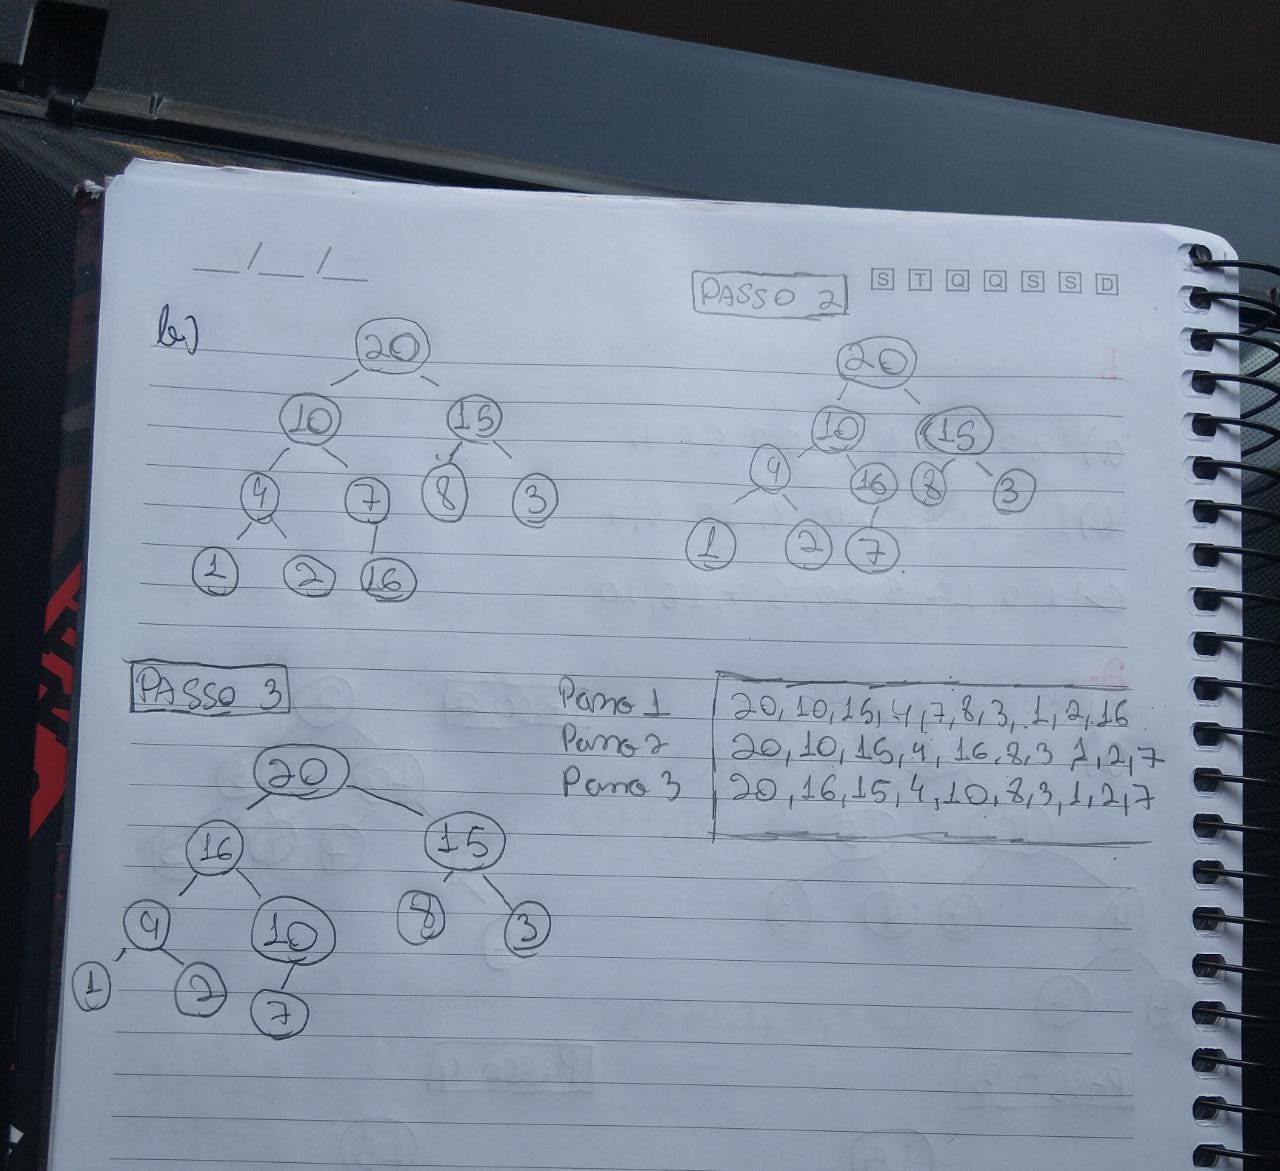 __/__/__
PASSO 2
S T Q Q S S D
b)
20
10 15
4 7 8 3
1 2 16
20
10 15
4 16 8 3
1 2 7
PASSO 3
20
16 15
4 10 8 3
1 2 7
Passo 1 20, 10, 15, 4, 7, 8, 3, 1, 2, 16
Passo 2 20, 10, 15, 4, 16, 8, 3 1, 2, 7
Passo 3 20, 16, 15, 4, 10, 8, 3, 1, 2, 7